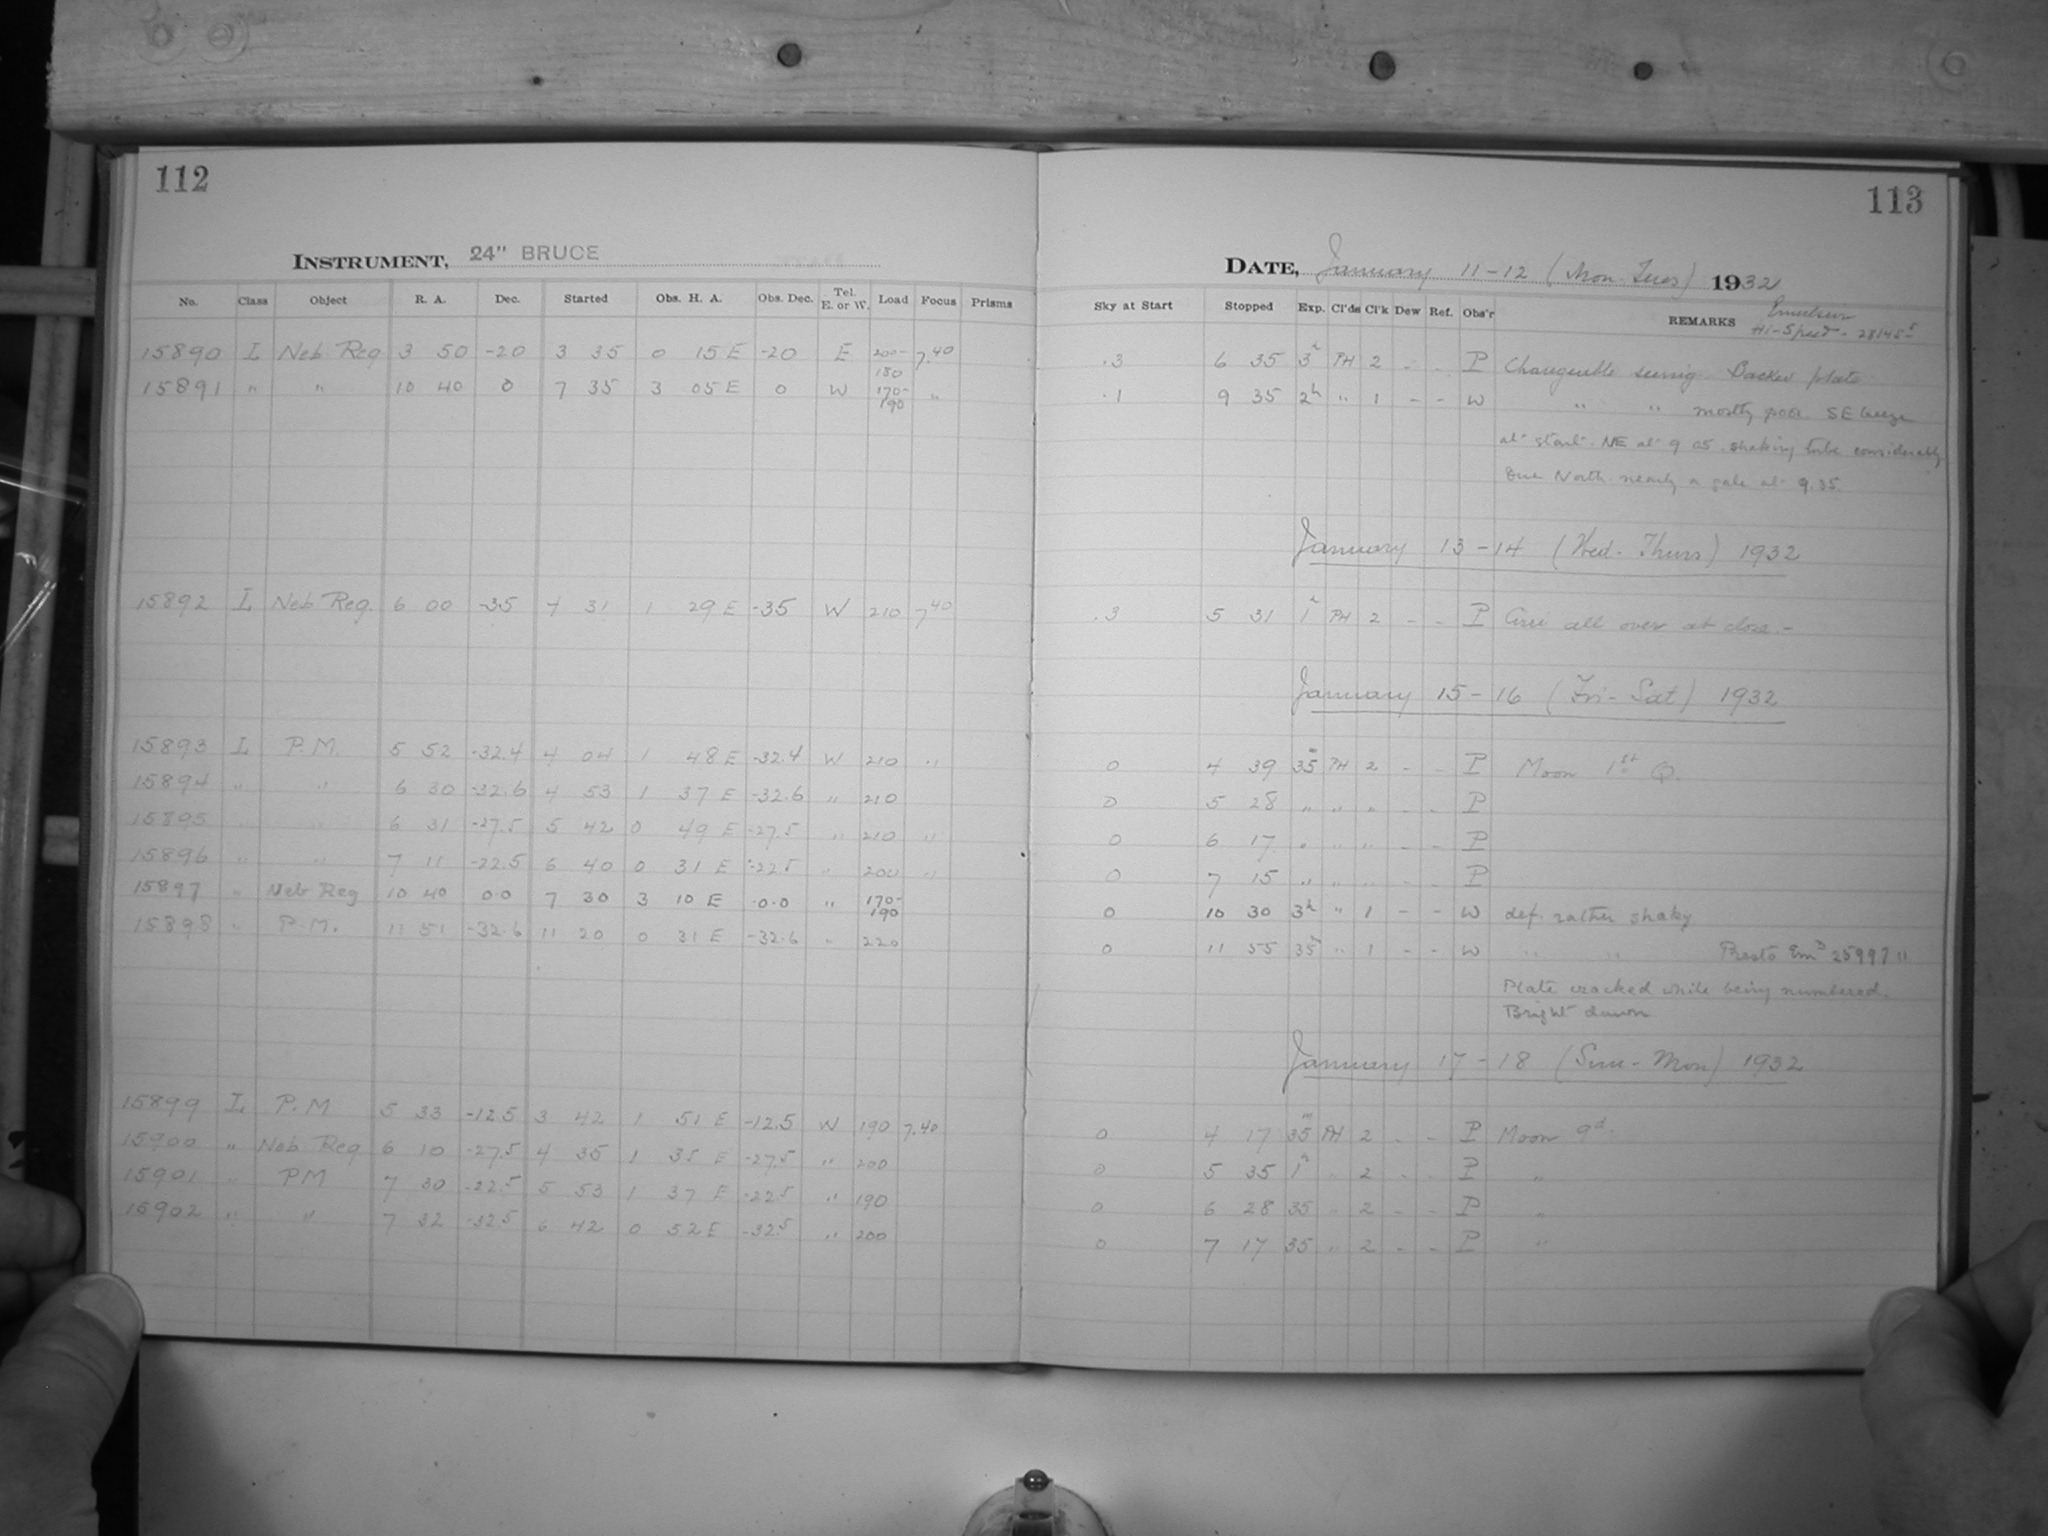 112
INSTRUMENT, 24" BRUCE
No. Class Object R. A. Dec. Started Obs. H. A. Obs. Dec. Tel. E. or W. Load Focus Prisms
15890 L Neb Reg 3 50 -20 3 35 0 15 E -20 E 200-180 7.40
15891 " " 10 40 0 7 35 3 05 E 0 W 170-190 "
15892 L Neb Reg. 6 00 -35 4 31 1 29 E -35 W 210 7.40
15893 L P.M. 5 52 -32.4 4 04 1 48 E -32.4 W 210 "
15894 " " 6 30 -32.6 4 53 1 37 E -32.6 " 210
15895 " " 6 31 -27.5 5 42 0 49 E -27.5 " 210 "
15896 " " 7 11 -22.5 6 40 0 31 E -22.5 " 200 "
15897 " Neb Reg 10 40 0.0 7 30 3 10 E 0.0 " 170-190
15898 " P.M. 11 51 -32.6 11 20 0 31 E -32.6 " 220
15899 L P.M 5 33 -12.5 3 42 1 51 E -12.5 W 190 7.40
15900 " Neb Reg 6 10 -27.5 4 35 1 35 E -27.5 " 200
15901 " PM 7 30 -22.5 5 53 1 37 E -22.5 " 190
15902 " " 7 32 -32.5 6 42 0 52 E -32.5 " 200
113
DATE, January 11-12 (Mon-Tues) 1932
Sky at Start Stopped Exp. Cl'ds Cl'k Dew Ref. Obs'r REMARKS Emulsion
Hi-Speed - 28145
.3 6 35 3h PH 2 - - P Changeable seeing. Backed plate
.1 9 35 2h " 1 - - W " " mostly poor SE breeze
at start. NE at 9 05 shaking tube considerably
Due North. nearly a gale at 9.35.
January 13-14 (Wed. Thurs) 1932
.3 5 31 1h PH 2 - - P Cirri all over at close.-
January 15-16 (Fri-Sat) 1932
0 4 39 35m PH 2 - - P Moon 1st Q.
0 5 28 " " " - - P
0 6 17 " " " - - P
0 7 15 " " " - - P
0 10 30 3h " 1 - - W def. rather shaky
0 11 55 35m " 1 - - W " " Presto Em 25997
Plate cracked while being numbered.
Bright dawn
January 17-18 (Sun-Mon) 1932
0 4 17 35m PH 2 - - P Moon 9d.
0 5 35 1h " 2 - - P "
0 6 28 35 " 2 - - P "
0 7 17 35 " 2 - - P "